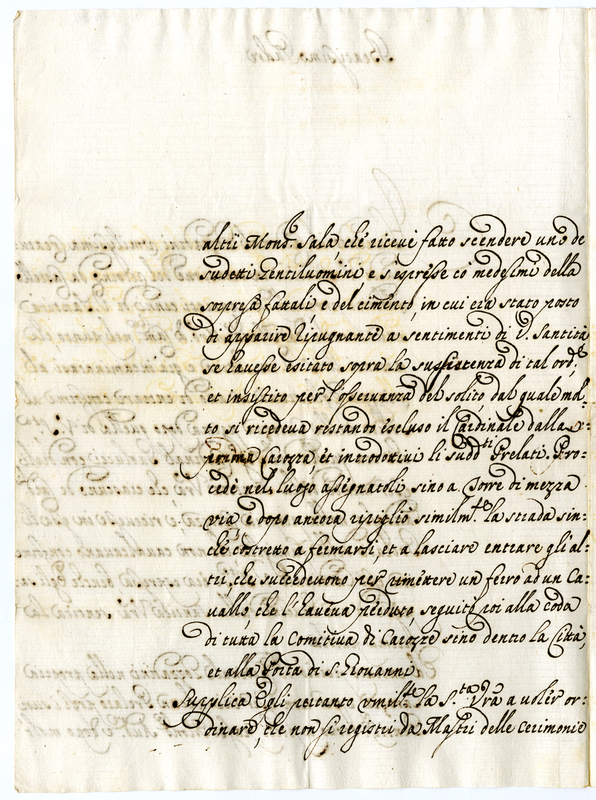 altri Mons.r Sala, che riceuè fatto scendere uno de
sudetti Gentiluomini e s'espresse cò medesimi della
sorpresa fattali, e del cimento, in cui era stato posto
di apparire ripugnante a sentimenti di V. Santità
se hauesse esitato sopra la sussistenza di tal ord.e
et insistito per l'osseruanza del solito dal quale mol-
to si ricedeva restando escluso il Cardinale dalla
prima Carozza, et introdottivi li sudd.ti Prelati. Pro-
cedè nel luogo assegnatoli sino a Torre di mezza
via e dopo ancora ripigliò similm.te la strada sin-
che costretto a fermarsi, et a lasciare entrare gli al-
tri, che succedevono per rimettere un ferro ad un Ca-
uallo, che l'haueua perduto, seguitò poi alla coda
di tutta la Comitiva di Carozze sino dentro la Città,
et alla Porta di S. Giovanni.
Supplica Egli pertanto vmil.te la S.ta Vra a voler or-
dinare, che non si registri da Mastri delle Cerimonie